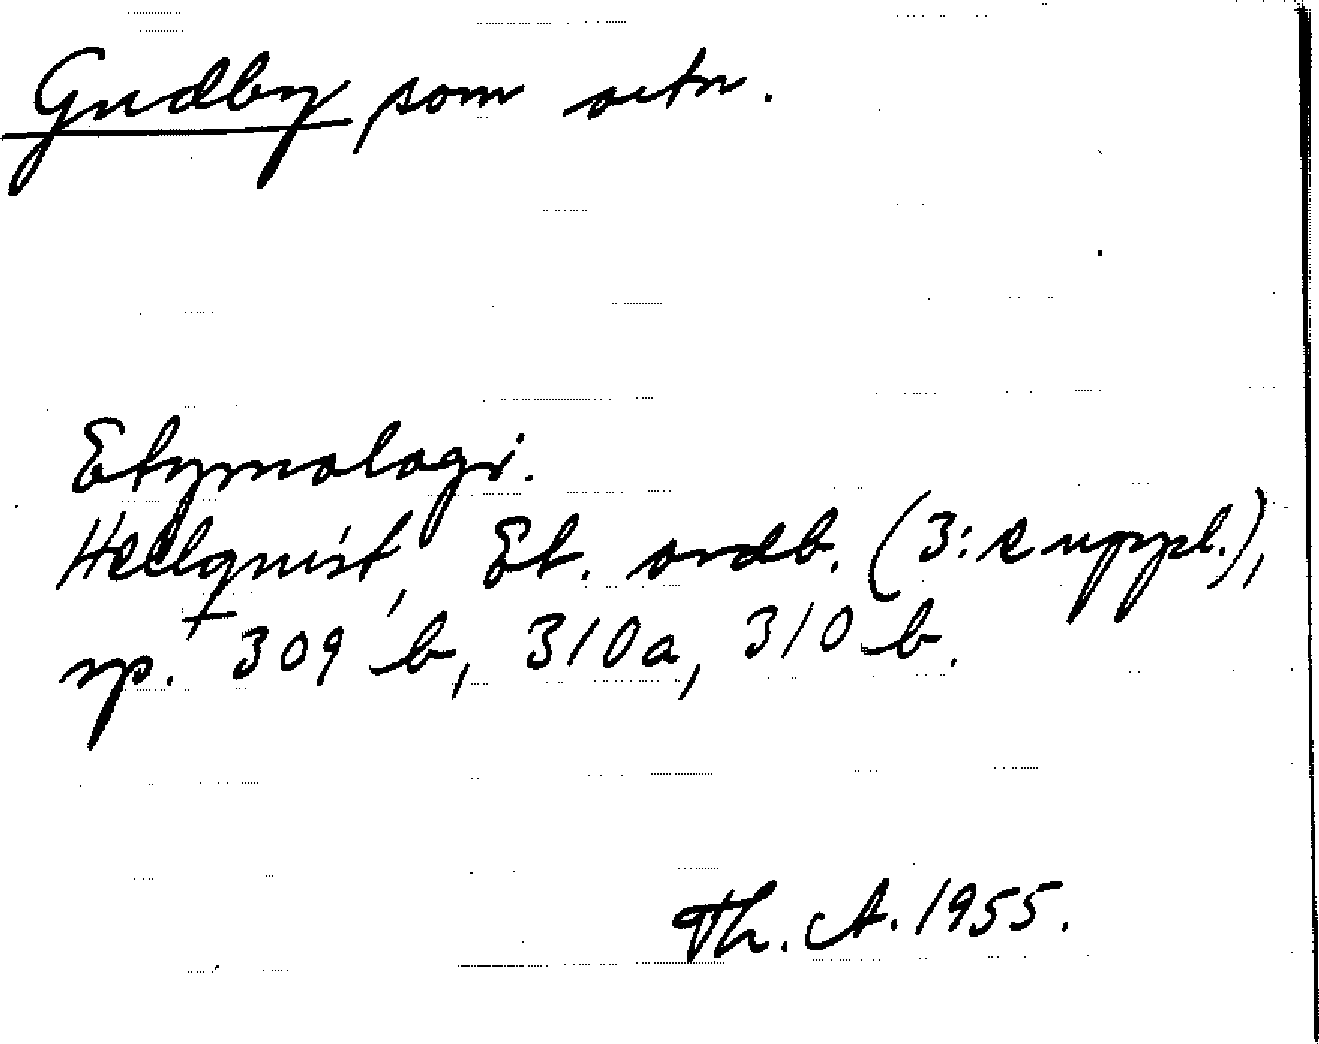 Gudby som ortn.
Etymologi.
Hellquist, Et. ordb. (3:e uppl.),
sp. 309 b, 310a, 310 b.
Th. A. 1955.